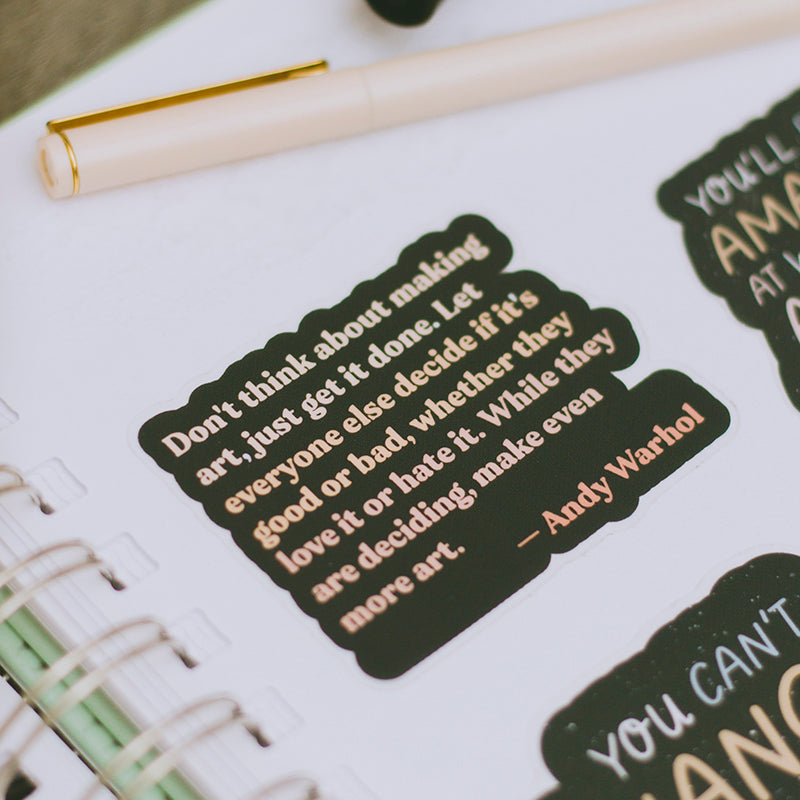 Don't think about making
art, just get it done. Let
everyone else decide if it's
good or bad, whether they
love it or hate it. While they
are deciding, make even
more art.
— Andy Warhol
YOU'LL
AMA
AT
YOU CAN'T